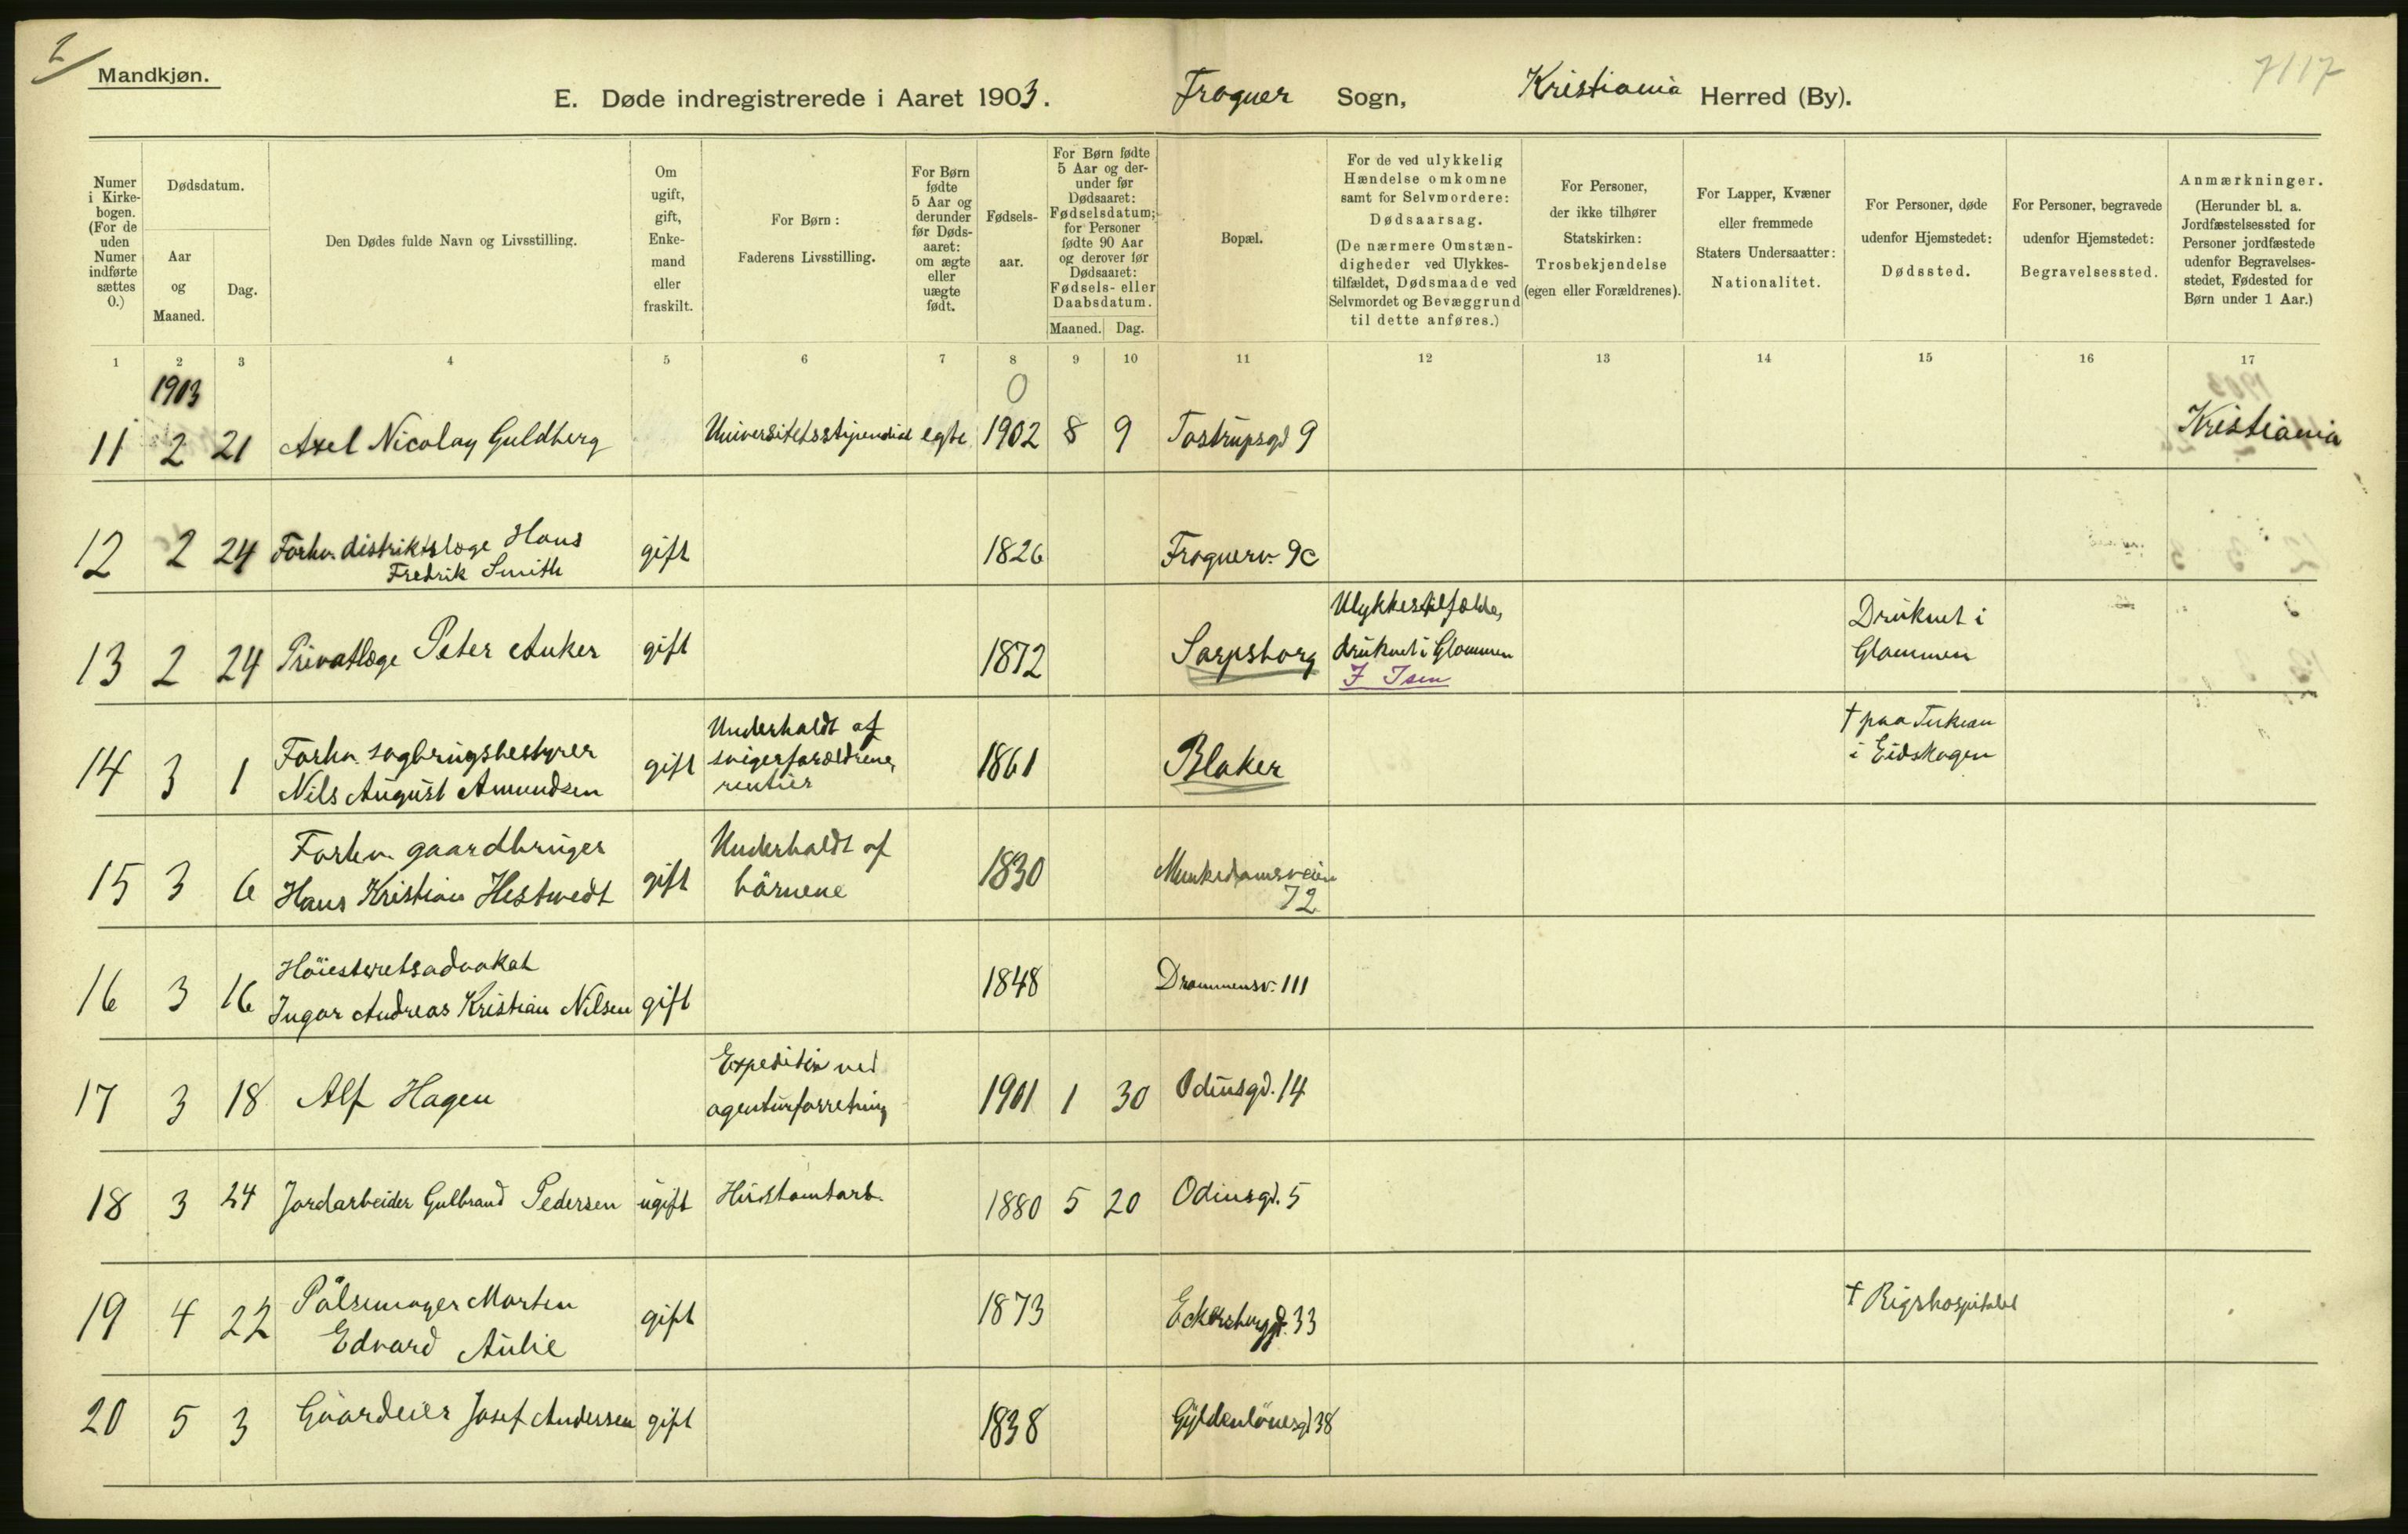 2
Mandkjøn.
7117
E. Døde indregistrerede i Aaret 1903. Frogner Sogn, Kristiania Herred (By).
Numer i Kirke-bogen. (For de uden Numer indførte sættes 0.)
Dødsdatum.
Aar og Maaned.
Dag.
Den Dødes fulde Navn og Livsstilling.
Om ugift, gift, Enke-mand eller fraskilt.
For Børn: Faderens Livsstilling.
For Børn fødte 5 Aar og derunder før Døds-aaret: om ægte eller uægte født.
Fødsels-aar.
For Børn fødte 5 Aar og der-under før Dødsaaret: Fødselsdatum; for Personer fødte 90 Aar og derover før Dødsaaret: Fødsels- eller Daabsdatum.
Maaned. Dag.
Bopæl.
For de ved ulykkelig Hændelse omkomne samt for Selvmordere: Dødsaarsag. (De nærmere Omstæn-digheder ved Ulykkes-tilfældet, Dødsmaade ved Selvmordet og Bevæggrund til dette anføres.)
For Personer, der ikke tilhører Statskirken: Trosbekjendelse (egen eller Forældrenes).
For Lapper, Kvæner eller fremmede Staters Undersaatter: Nationalitet.
For Personer, døde udenfor Hjemstedet: Dødssted.
For Personer, begravede udenfor Hjemstedet: Begravelsessted.
Anmærkninger. (Herunder bl. a. Jordfæstelsessted for Personer jordfæstede udenfor Begravelses-stedet, Fødested for Børn under 1 Aar.)
1 2 3 4 5 6 7 8 9 10 11 12 13 14 15 16 17
1903 0
11 2 21 Axel Nicolay Guldberg Universitetsstipendiat egte 1902 8 9 Tostrupsgd 9 Kristiania
12 2 24 Forhv. distriktslæge Hans
Fredrik Smith gift 1826 Frognerv. 9c
13 2 24 Privatlæge Peter Anker gift 1872 Sarpsborg Ulykkestilfælde,
druknet i Glommen
Druknet i
Glommen
14 3 1 Forhv. sagbrugsbestyrer
Nils August Amundsen gift Underholdt af
svigerforældrene,
rentier 1861 Blaker † paa
i Eidskogen
15 3 6 Forhv. gaardbruger
Hans Kristian Hestvedt gift Underholdt af
børnene 1830 Munkedamsveien
72
16 3 16 Höiesteretsadvokat
Ingar Andreas Kristian Nilsen gift 1848 Drammensv. 111
17 3 18 Alf Hagen Expeditör ved
agenturforretning 1901 1 30 Odinsgd. 14
18 3 24 Jordarbeider Gulbrand Pedersen ugift Hustomtarb. 1880 5 20 Odinsgd. 5
19 4 22 Pölsemager Morten
Edvard Aulie gift 1873 Eckersbergsgd. 33 † Rigshospitalet
20 5 3 Gaardeier Josef Andersen gift 1838 Gyldenlövesgd 38